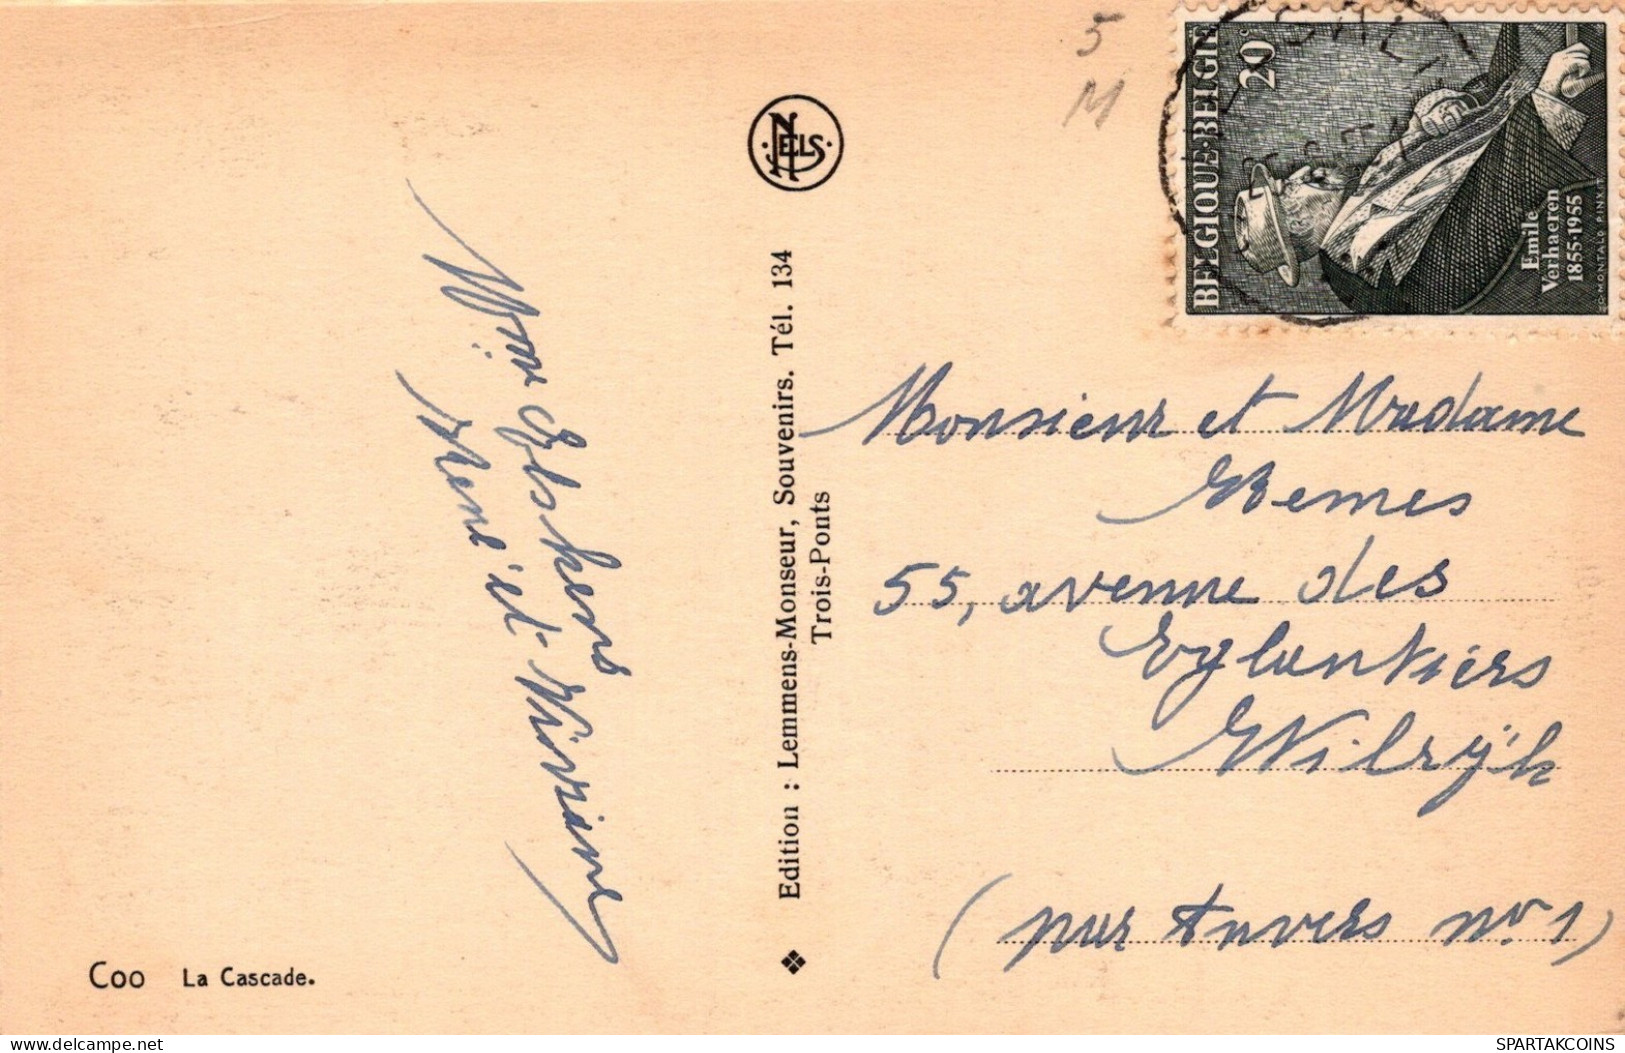 5
M
BELGIQUE·BELGIË
20c
Emile
Verhaeren
1855·1955
C·MONTALD PINXIT
NELS
Edition : Lemmens-Monseur, Souvenirs. Tél. 134
Trois-Ponts
René et Viviane
Monsieur et Madame
55, avenue des
Eglantiers
Wilrÿk
(par Anvers no 1)
Coo La Cascade.
SPARTAKCOINS
delcampe.net